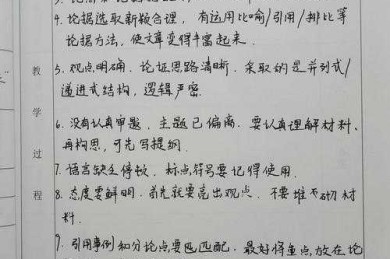 4. 论据选取新颖合理，有运用比喻/引用/排比等
论据方法，使文章变得丰富起来．
5. 观点明确．论证思路清晰．采取的是并列式/
递进式结构，逻辑严密．
6. 没有认真审题，主题已偏离．要认真理解材料．
再构思，可先写提纲．
7. 语言缺乏停顿．标点符号要记得使用．
8. 态度要鲜明．首先就要亮出观点．不要堆砌材
料．
9. 引用事例和分论点要匹配．最好侧重点放在论
教
学
过
程